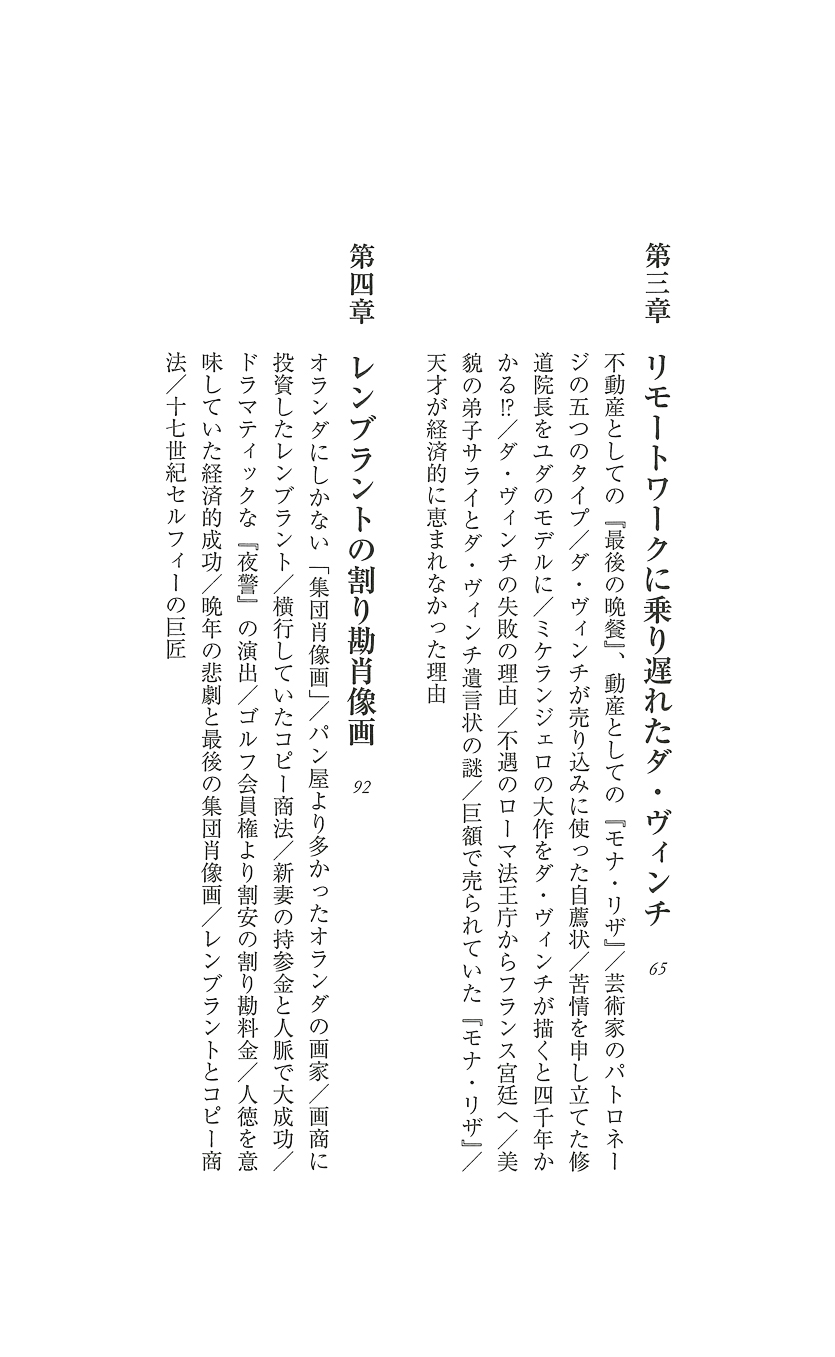 第三章 リモートワークに乗り遅れたダ・ヴィンチ 65
不動産としての『最後の晩餐』、動産としての『モナ・リザ』／芸術家のパトロネー
ジの五つのタイプ／ダ・ヴィンチが売り込みに使った自薦状／苦情を申し立てた修
道院長をユダのモデルに／ミケランジェロの大作をダ・ヴィンチが描くと四千年か
かる!?／ダ・ヴィンチの失敗の理由／不遇のローマ法王庁からフランス宮廷へ／美
貌の弟子サライとダ・ヴィンチ遺言状の謎／巨額で売られていた『モナ・リザ』／
天才が経済的に恵まれなかった理由
第四章 レンブラントの割り勘肖像画 92
オランダにしかない「集団肖像画」／パン屋より多かったオランダの画家／画商に
投資したレンブラント／横行していたコピー商法／新妻の持参金と人脈で大成功／
ドラマティックな『夜警』の演出／ゴルフ会員権より割安の割り勘料金／人徳を意
味していた経済的成功／晩年の悲劇と最後の集団肖像画／レンブラントとコピー商
法／十七世紀セルフィーの巨匠